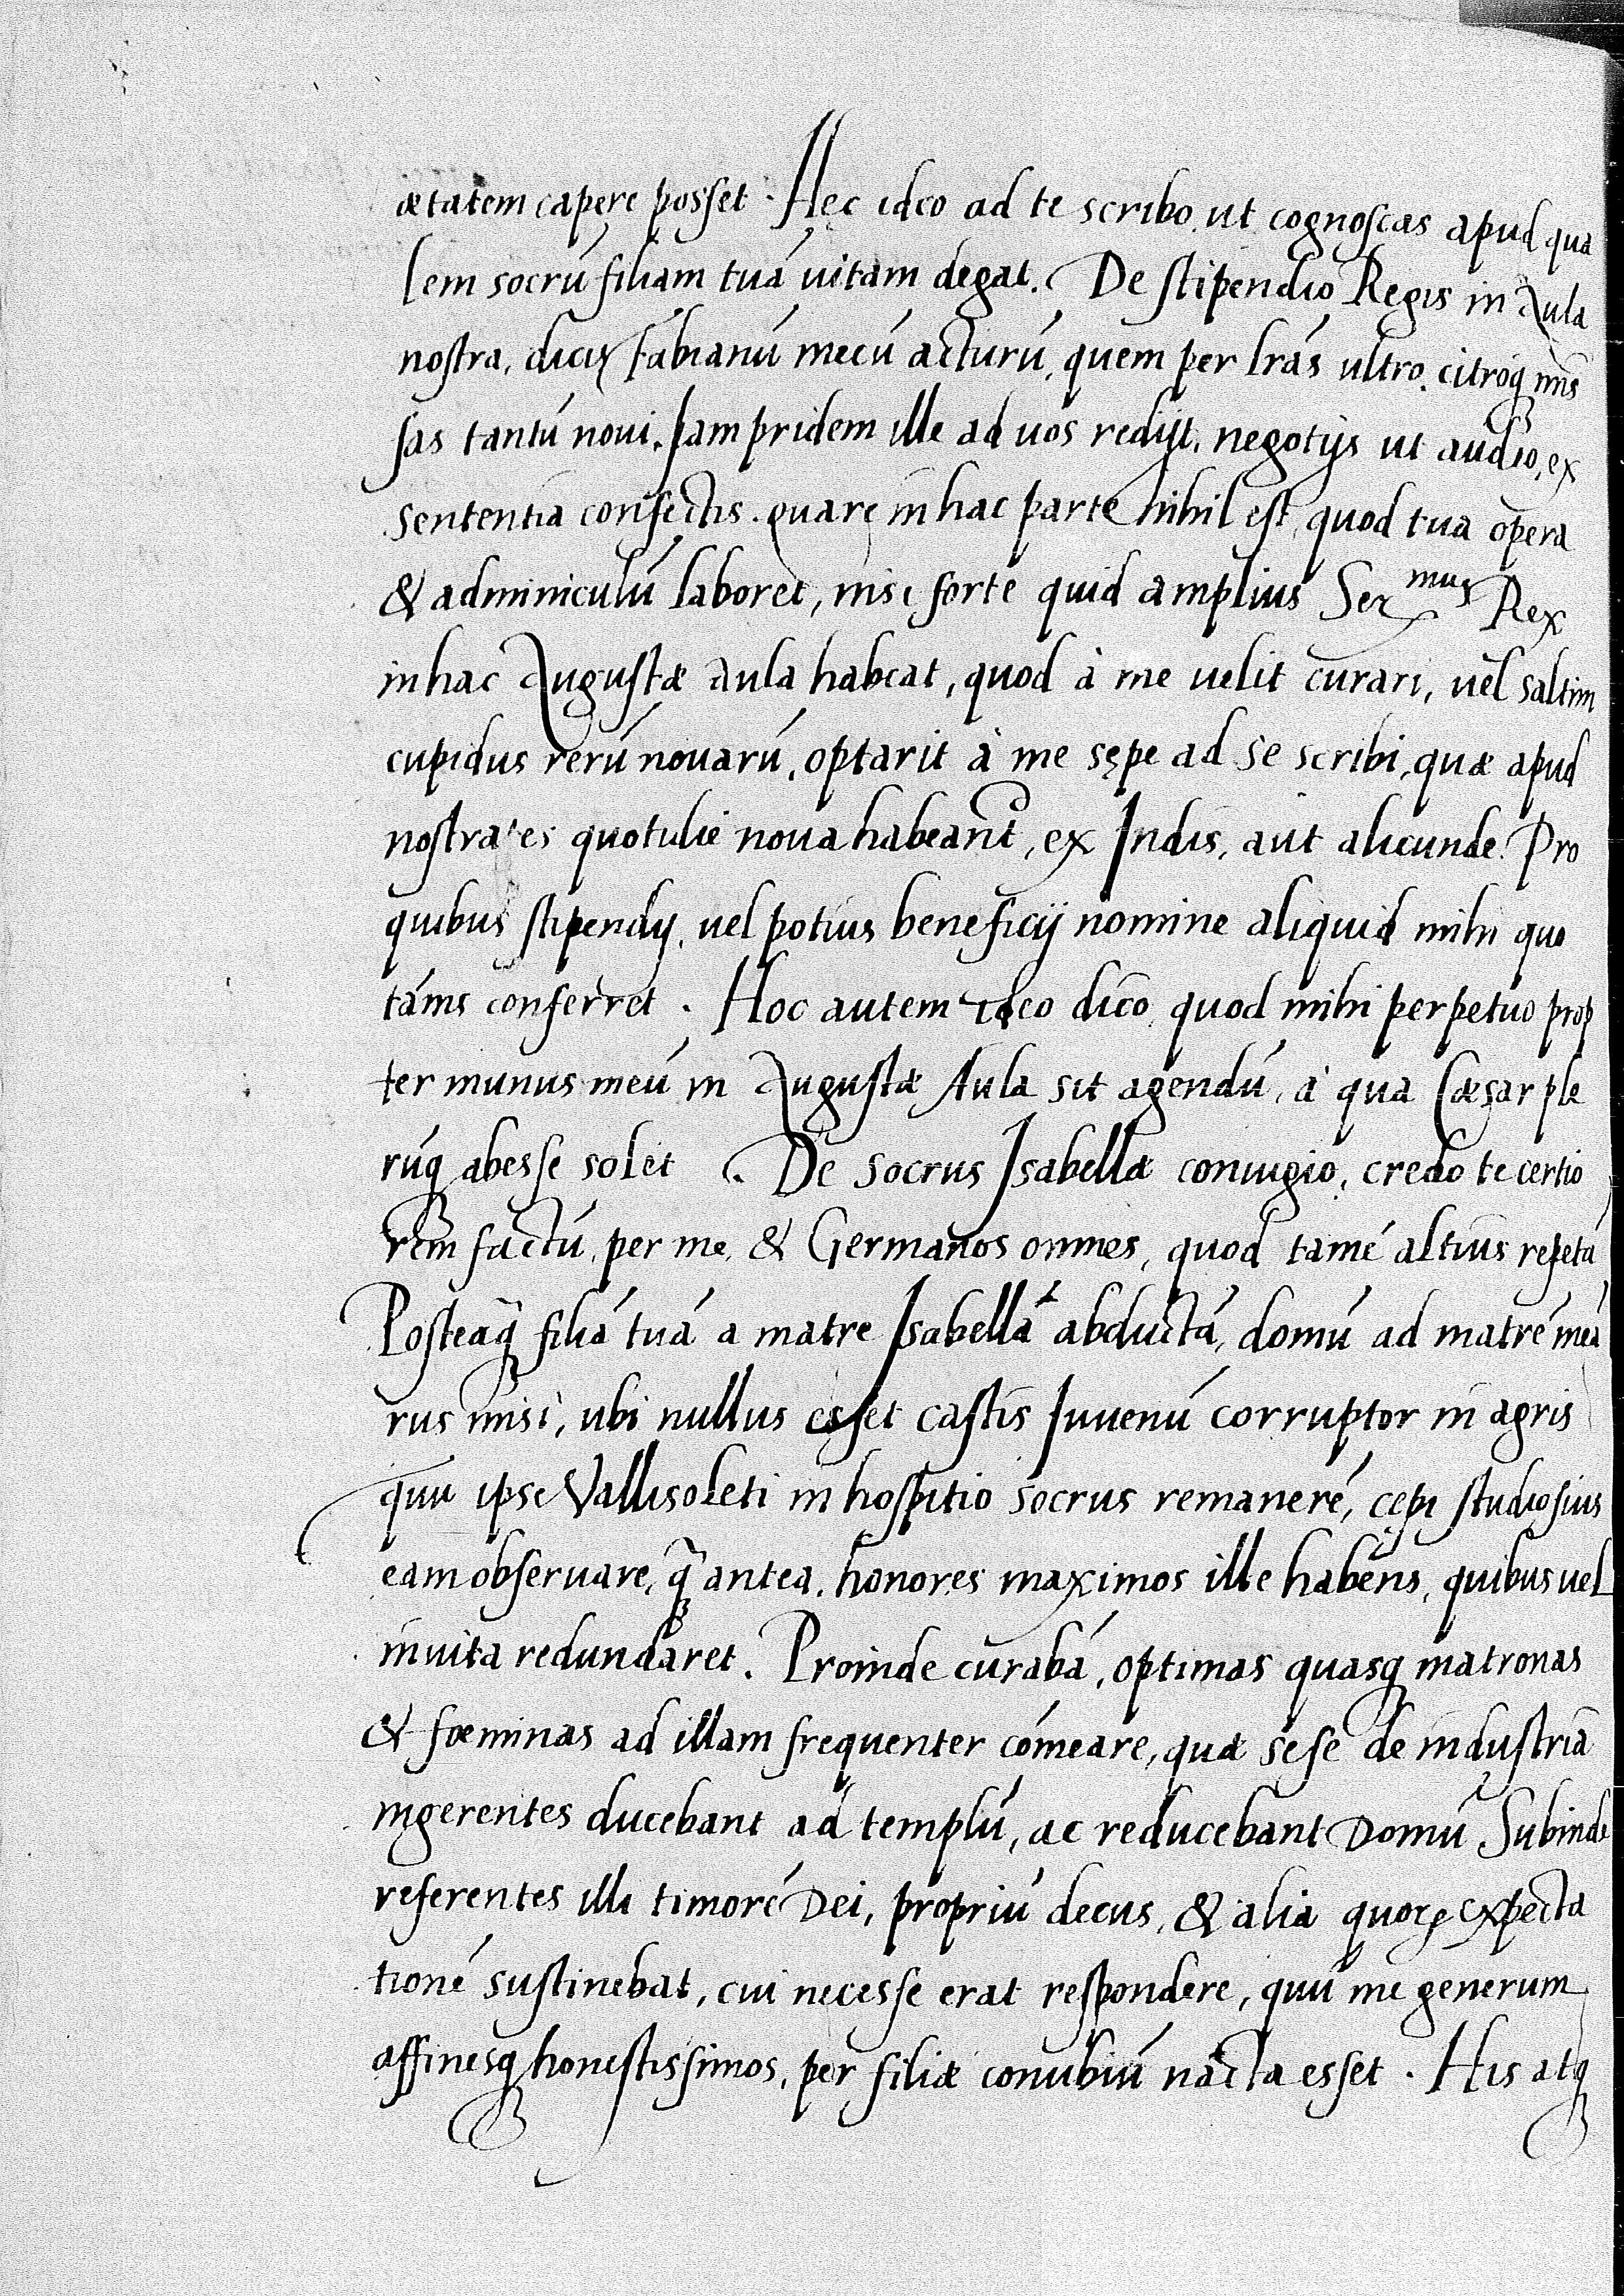 ætatem capere posset. Hęc ideo ad te scribo, ut cognoscas apud qua
lem socrũ filiam tuã uitam degat. De stipendio Regis in Aula
nostra, dicis Fabianũ mecũ acturũ, quem per lr̃as ultro, citroq mis
sas tantũ noui. Jam pridem ille ad uos redijt, negotijs ut audio, ex
sententia confectis. quare in hac parte nihil est, quod tua opera
& adminiculũ laboret, nisi forte quid amplius Ser^mus Rex
in hac Augustæ aula habeat, quod à me uelit curari, uel saltim
cupidus rerũ nouarũ, optarit à me sępe ad se scribi, quæ apud
nostrates quotidie noua habeant, ex Indis, aut alicunde. Pro
quibus stipendij, uel potius beneficij nomine aliquid mihi quo
tãnis conferret. Hoc autem ideo dico, quod mihi perpetuo prop
ter munus meũ in Augustæ Aula sit agendũ, à qua Cæsar ple
rũq abesse solet. De socrus Isabellæ coniugio, credo te certio
rem factũ, per me, & Germanos omnes, quod tamẽ altius repetã
Posteaq̃ filiã tuã a matre Isabellã abductã, domũ ad matrẽ meã
rus misi, ubi nullus esset castis Juuenũ corruptor in agris
quũ ipse Vallisoleti in hospitio socrus remanerẽ, cępi studiosius
eam obseruare, q̃ antea, honores maximos ille habens, quibus uel
inuita redundaret. Proinde curabã, optimas quasq matronas
& fœminas ad illam frequenter cõmeare, quæ sese de industria
ingerentes ducebant ad templũ, ac reducebant Domũ Subinde
referentes illi timorẽ Dei, propriũ decus, & alia quorꝝ expecta
tionẽ sustinebat, cui necesse erat respondere, quũ me generum
affinesq honestissimos, per filiæ conubiũ nacta esset. His atq